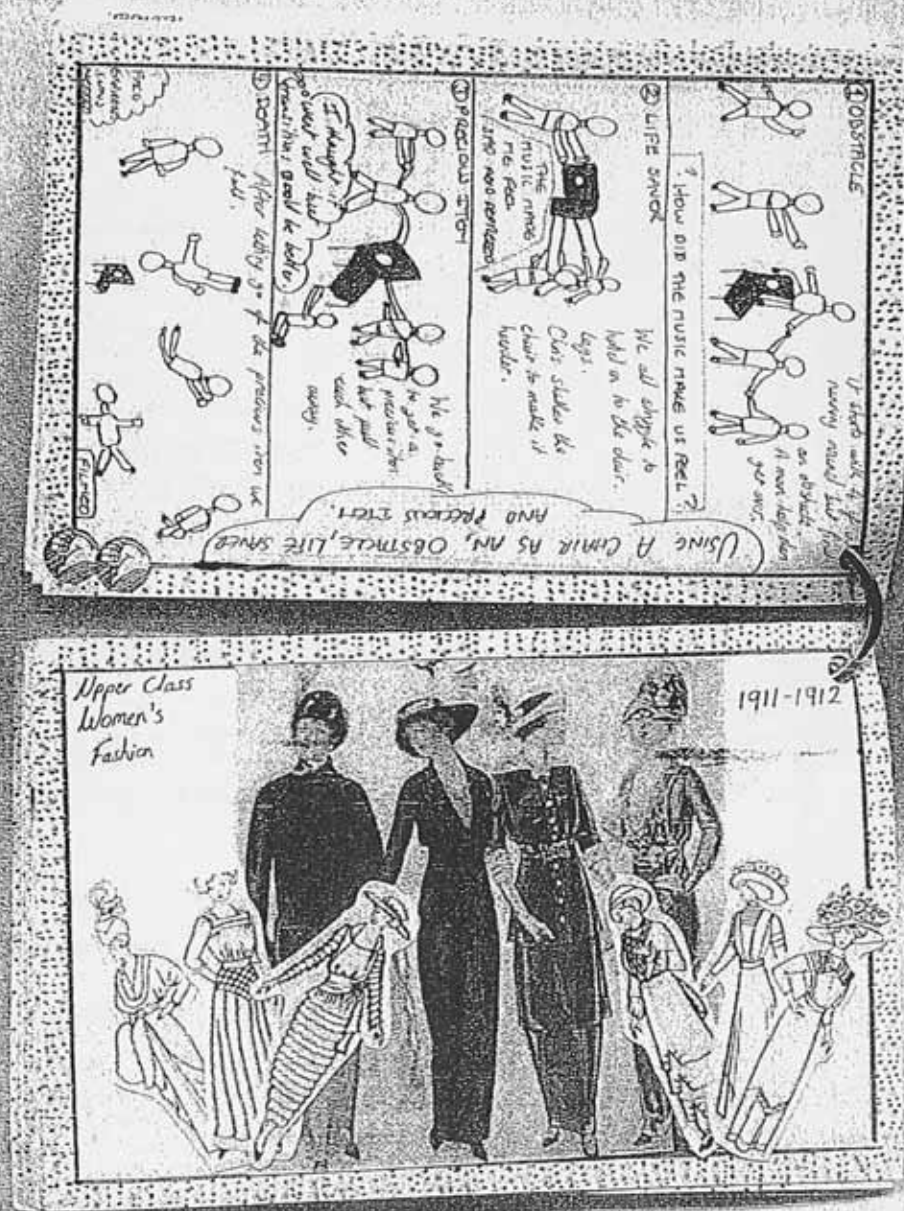 USING A CHAIR AS AN, OBSTACLE, LIFE SAVER
AND PRECIOUS ITEM.
① OBSTACLE
It starts with
running round but find
an obstacle.
A man helps them
get over.
? HOW DID THE MUSIC MAKE US FEEL ?
② LIFE SAVOR
We all struggle to
hold on to the chair
legs.
Chris shakes the
chair to make it
harder.
THE
MUSIC MAKES
ME FEEL
SAD AND
③ PRECIOUS ITEM
We go back
to get a
precious item
but pull
each other
away.
I thought it
went well but
transitions could be better.
④ DEATH After letting go of the precious item we
fall.
FILMED
Upper Class
Women's
Fashion
1911-1912